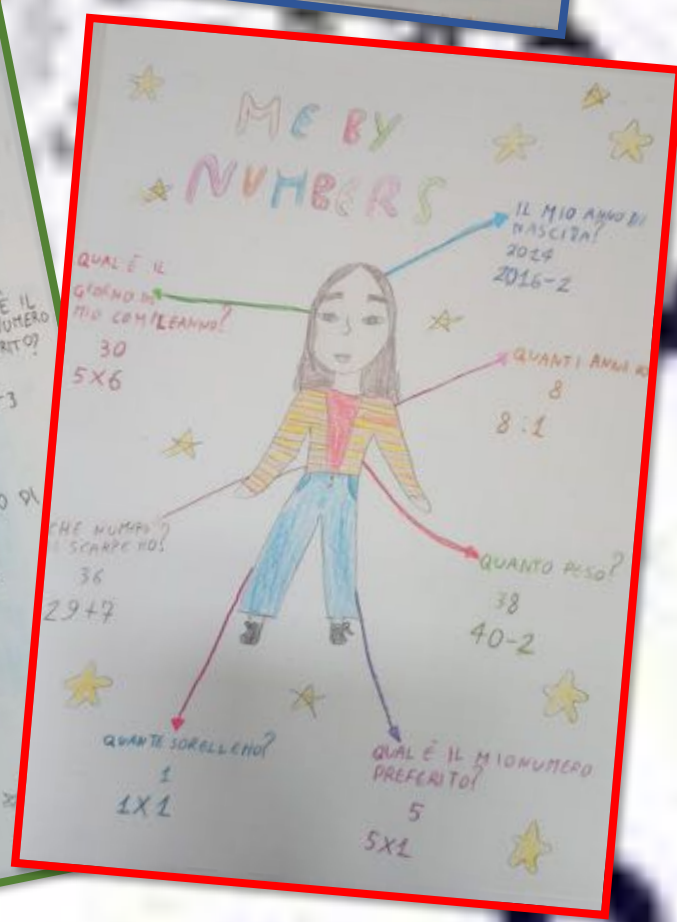 ME BY
NUMBERS
IL MIO ANNO DI
NASCITA?
2014
2016-2
QUAL È IL
GIORNO DI
MIO COMPLEANNO?
30
5X6
QUANTI ANNI HO
8
8:1
CHE NUMERO
DI SCARPE HO?
36
29+7
QUANTO PESO?
38
40-2
QUANTE SORELLE HO?
1
1X1
QUAL È IL MIO NUMERO
PREFERITO?
5
5X1
È IL
UMERO
RITO?
-3
O DI